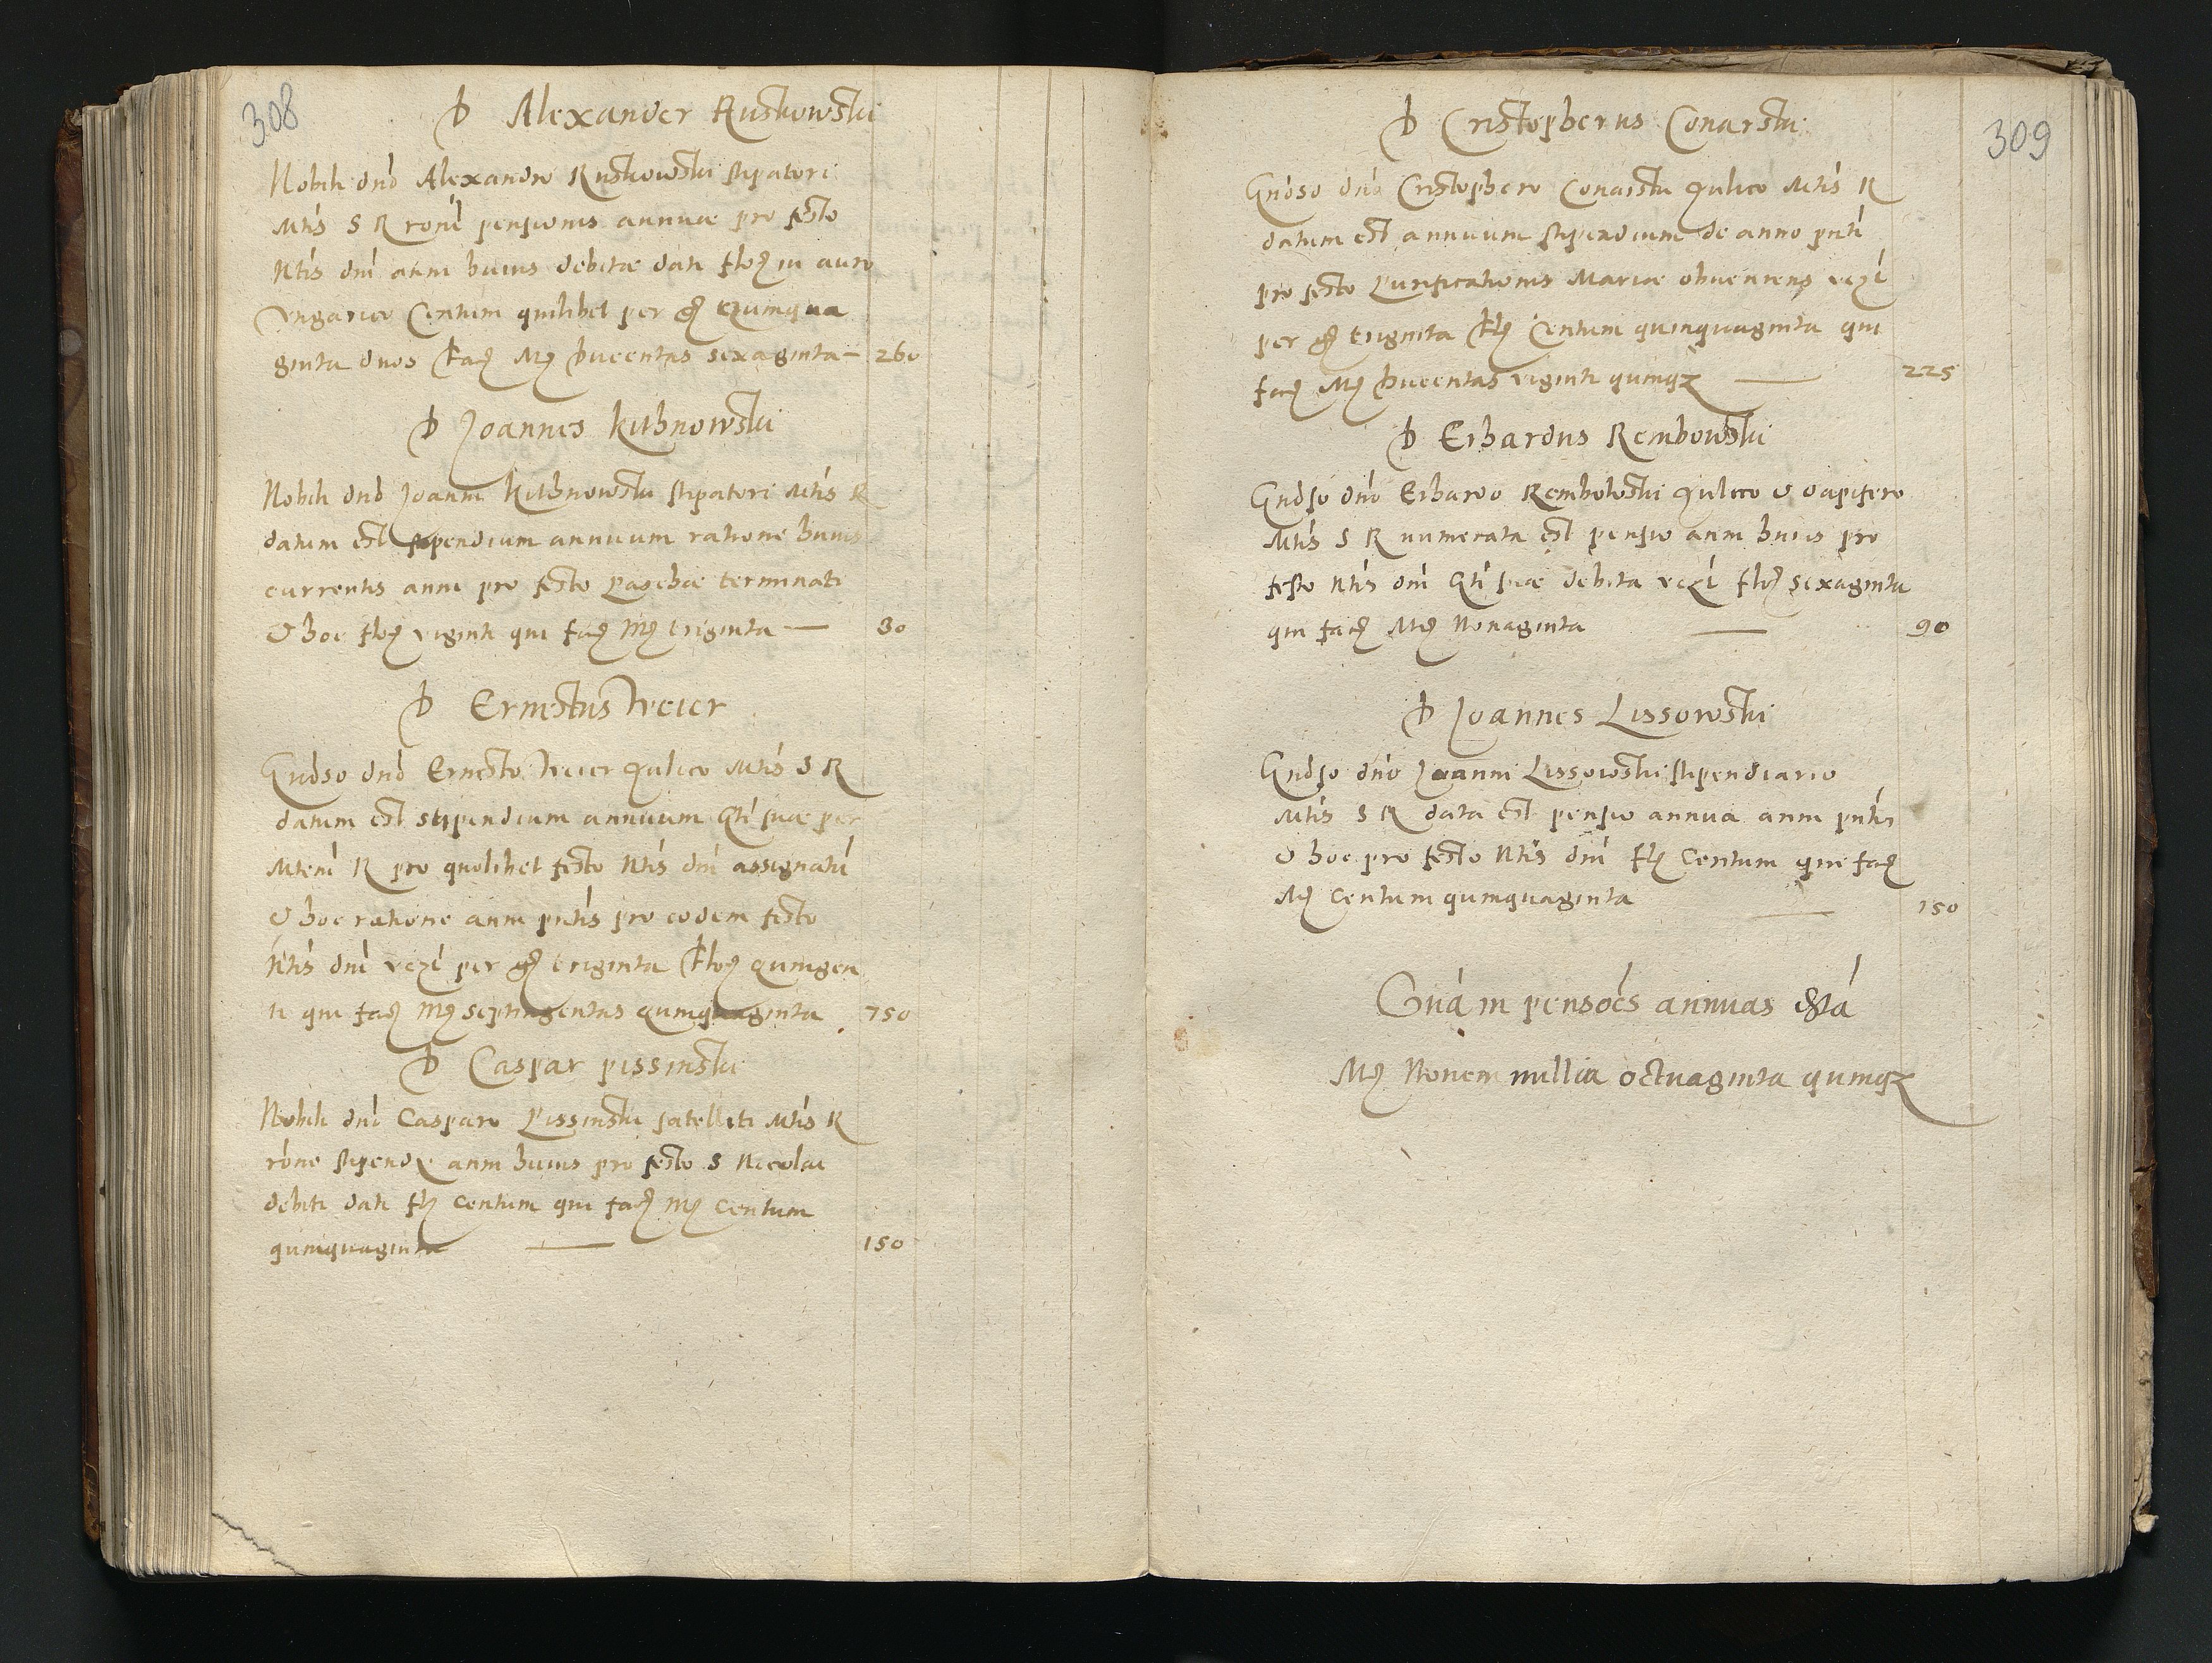 308
D Alexander Ruskowski
Nobili dnō Alexandro Ruskowski stipatori
Mtis S R ronē pensionis annuae pro festo
Ntis dni anni huius debitae dati floȝ in auro
Vngarico Centum quilibet per gȝ Quinqua
ginta duos faciȝ Mȝ Ducentas sexaginta — 260
D Joannes Kithnowski
Nobili dnō Joanni Kithnowski stipatori Mtis R
datum est stipendium annuum ratione huius
currentis anni pro festo Paschae terminati
& hoc floȝ viginti qui faciȝ Mȝ triginta — 30
D Ernestus Weier
Gndso dnō Ernesto Weier Aulico Mtis S R
datum est stipendium annuum Qti suae per
Mtem R pro quolibet festo Ntis dni assignatū
& hoc ratione anni pntis pro eodem festo
Ntis dni vczl per gȝ triginta floȝ Quingen
ti qui faciȝ Mȝ septingentas Quinquaginta 750
D Caspar Pissinski
Nobili dnō Casparo Pissinski satelliti Mtis R
rone stipendȝ anni huius pro festo S Nicolai
debiti dati flȝ Centum qui faciȝ Mȝ Centum
quinquaginta — 150
309
D Cristopherus Conarski
Gndso dnō Cristophero Conarski Aulico Mtis R
datum est annuum stipendium de anno pnti
pro festo Purificationis Mariae obveniens vczl
per gȝ triginta flȝ Centum quinquaginta qui
faciȝ Mȝ Ducentas viginti quinqȝ — 225
D Erhardus Rembowski
Gndso dnō Erhardo Rembowski Aulico & dapifero
Mtis S R numerata est pensio anni huius pro
festo Ntis dni Qti suae debita vczl floȝ sexaginta
qui faciȝ Mȝ Nonaginta — 90
D Joannes Lissowski
Gndso dnō Joanni Lissowski stipendiario
Mtis S R data est pensio annua anni pntis
& hoc pro festo Ntis dni flȝ Centum qui faciȝ
Mȝ Centum quinquaginta — 150
in pensoēs annuas
Mȝ Novem millia octuaginta quinqȝ